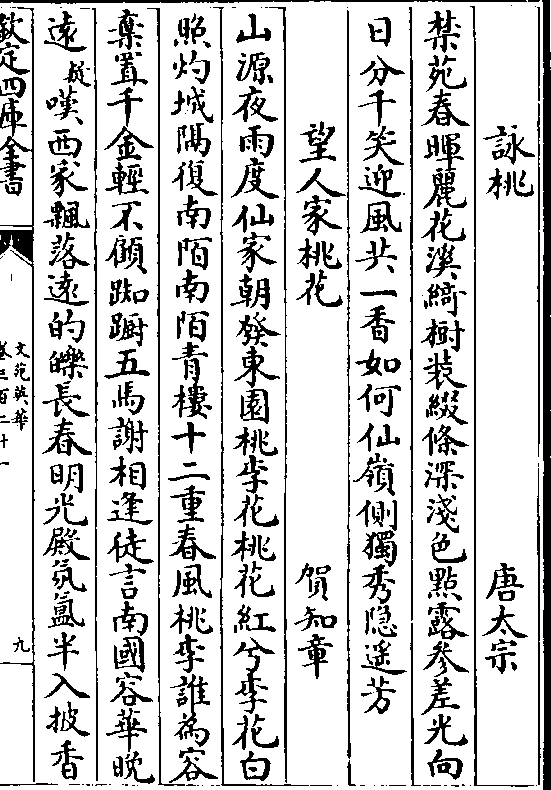 詠桃 唐太宗
禁苑春暉麗花溪綺樹装綴條深淺色㸃露參差光向
日分千笑迎風共一香如何仙嶺側獨秀隐遥芳
望人家桃花 賀知章
山源夜雨度仙家朝發東園桃李花桃花紅兮李花白
照灼城隅復南陌南陌青樓十二重春風桃李誰為容
棄置千金輕不顧踟蹰五馬謝相逢徒言南國容華晩
遠疑嘆西家飄落遠的皪長春明光殿氛氲半入披香
欽定四庫全書
文苑英華
卷三百二十一
九